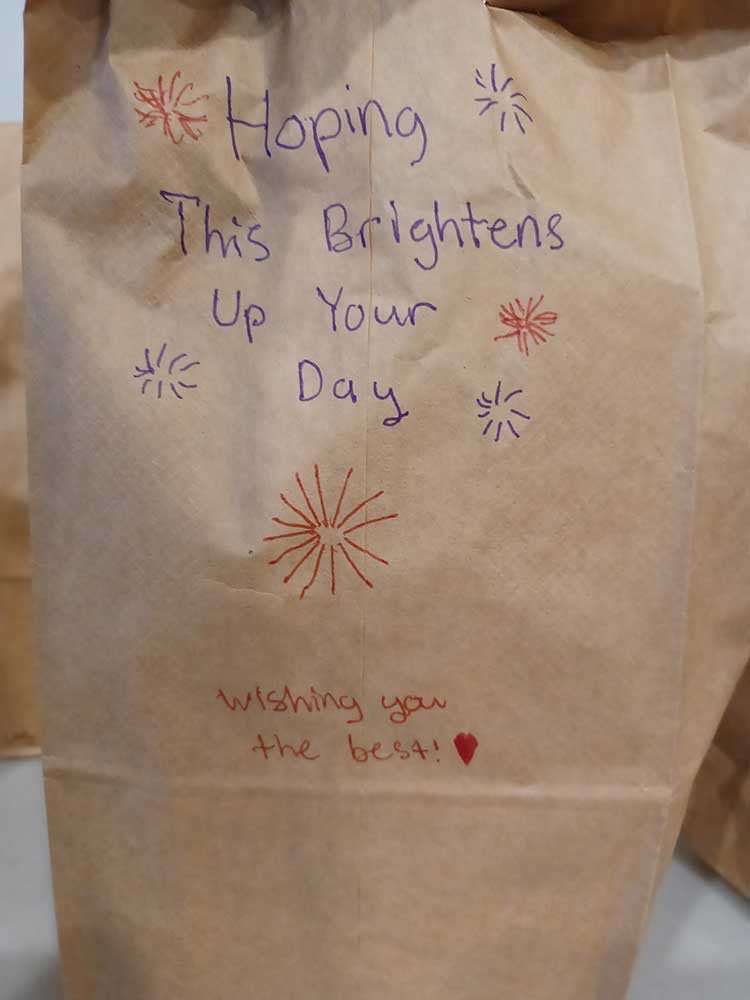 Hoping
This Brightens
Up Your
Day
wishing you
the best!